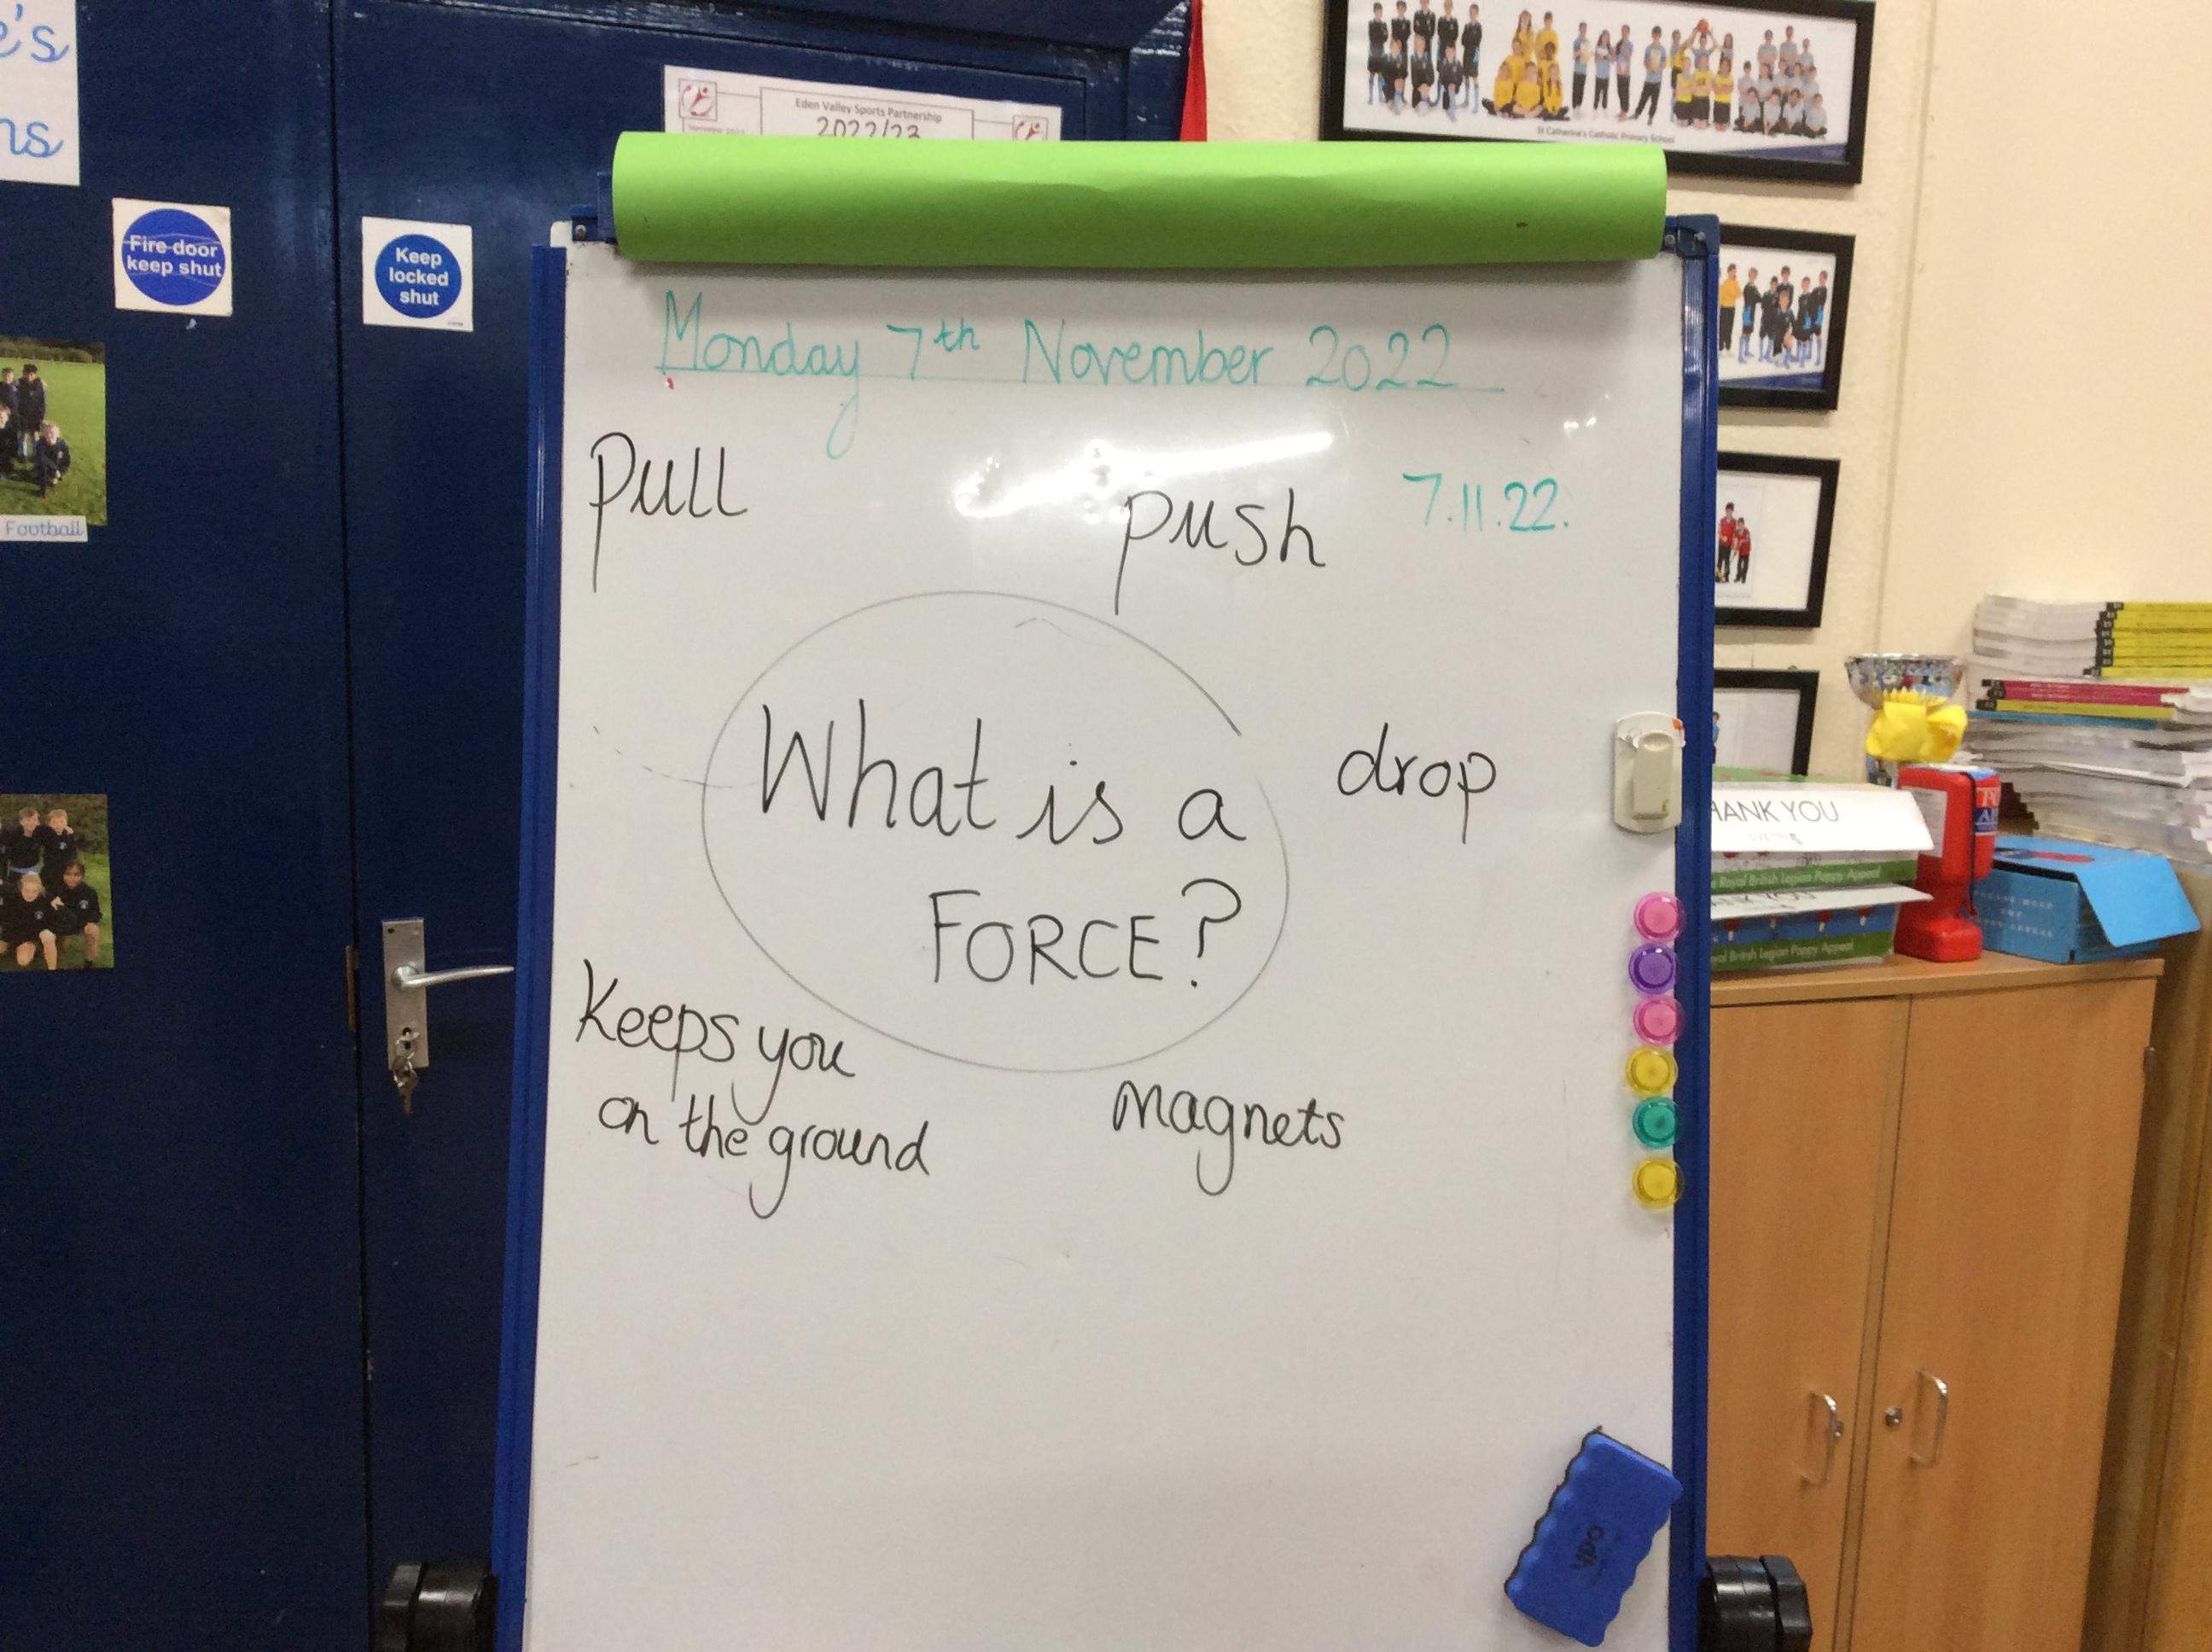 Eden Valley Sports Partnership
2022/23
St Catherine's Catholic Primary School
Fire door
keep shut
Keep
locked
shut
Monday 7th November 2022
pull
push
7.11.22.
Football
What is a
FORCE?
drop
Keeps you
on the ground
magnets
YOU
Royal British Legion Poppy Appeal
British Legion Poppy Appeal